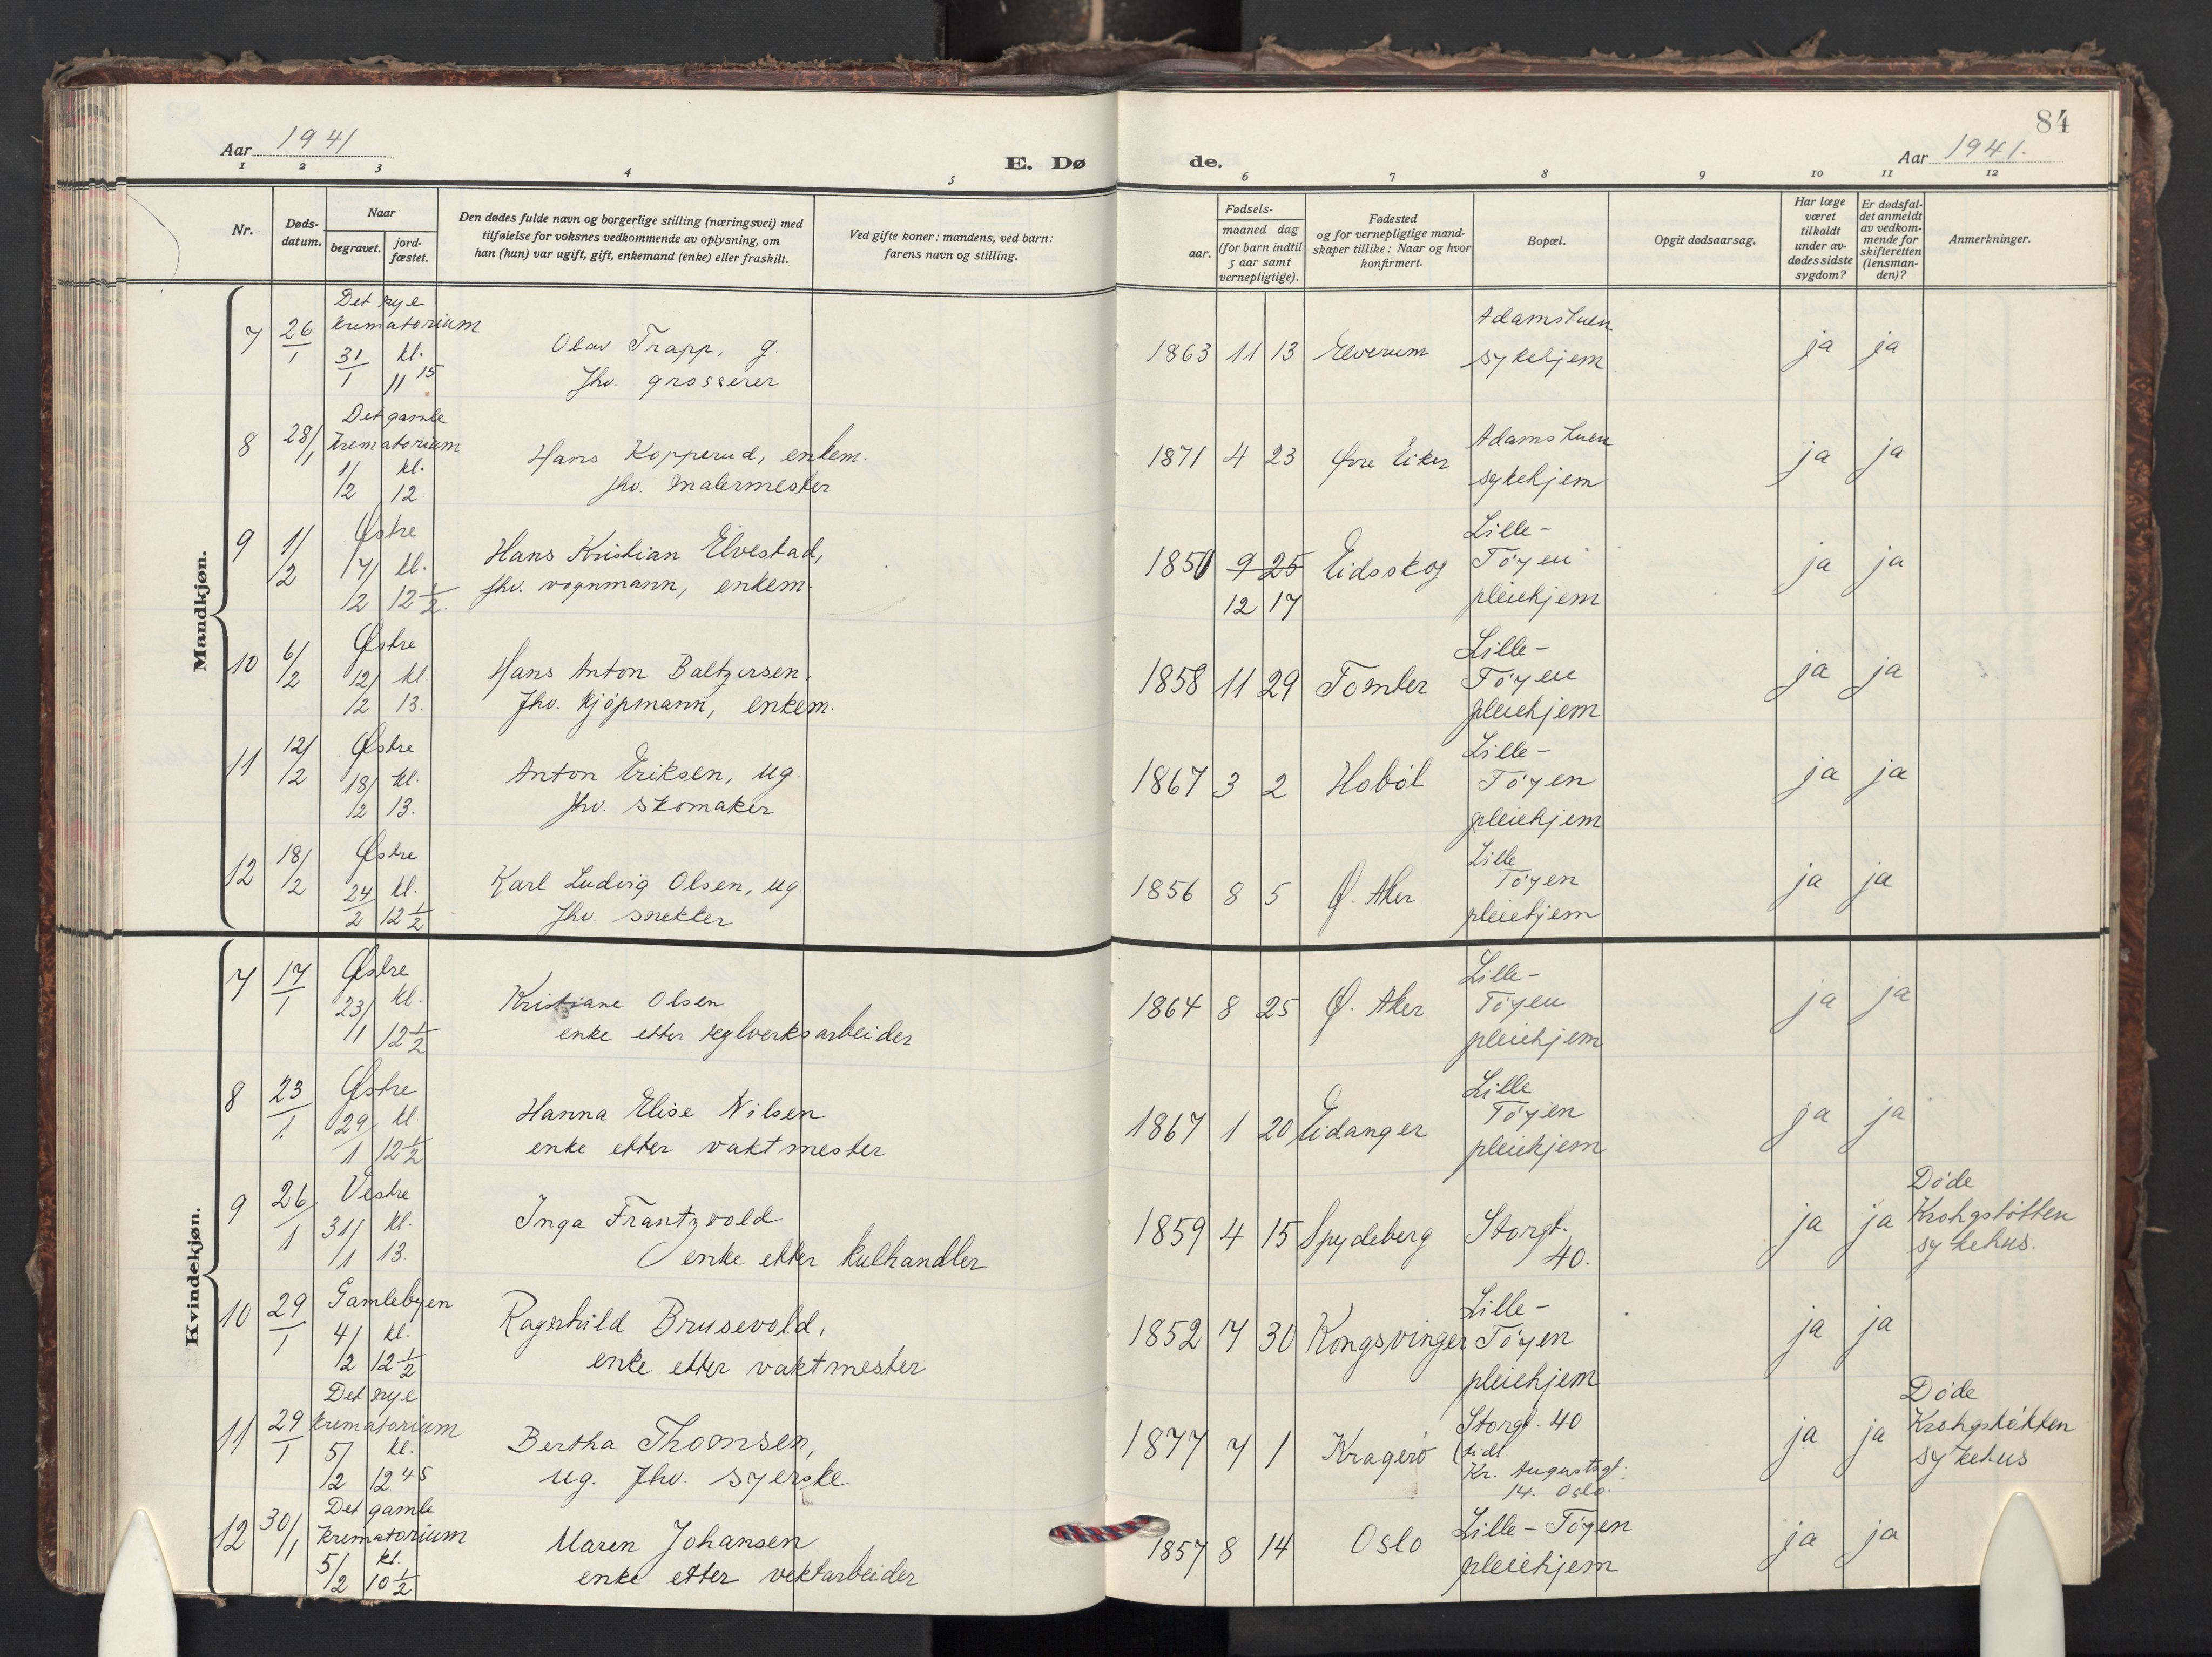 84
Aar 1941
E. Dø de.
Aar 1941.
1 2 3 4 5 6 7 8 9 10 11 12
Nr.
Døds-
datum.
Naar
begravet.
jord-
fæstet.
Den dødes fulde navn og borgerlige stilling (næringsvei) med
tilføielse for voksnes vedkommende av oplysning, om
han (hun) var ugift, gift, enkemand (enke) eller fraskilt.
Ved gifte koner: mandens, ved barn:
farens navn og stilling.
Fødsels-
aar.
maaned dag
(for barn indtil
5 aar samt
vernepligtige).
Fødested
og for vernepligtige mand-
skaper tillike: Naar og hvor
konfirmert.
Bopæl.
Opgit dødsaarsag.
Har læge
været
tilkaldt
under av-
dødes sidste
sygdom?
Er dødsfal-
det anmeldt
av vedkom-
mende for
skifteretten
(lensman-
den)?
Anmerkninger.
Mandkjøn.
7 26/1 Det nye
krematorium
31/1 kl. 11 15
Olav Trapp, g.
fhv. grosserer
1863 11 13 Elverum
Adamstuen
sykehjem
ja ja
8 28/1 Det gamle
krematorium
1/2 kl. 12.
Hans Kopperud, enkem.
fhv. malermester
1871 4 23 Øvre Eiker
Adamstuen
sykehjem
ja ja
9 1/2 Østre
7/2 kl. 12 1/2.
Hans Kristian Elvestad,
fhv. vognmann, enkem.
1850 9 25 Eidsskog
12 17
Lille-
Töyen
pleiehjem
ja ja
10 6/2 Østre
12/2 kl. 13.
Hans Anton Baltzersen,
Fhv. kjöpmann, enkem.
1858 11 29 Tomter
Lille-
Töyen
pleiehjem
ja ja
11 12/2 Østre
18/2 kl. 13.
Anton Eriksen, ug.
fhv. skomaker
1867 3 2 Hoböl
Lille-
Töyen
pleiehjem
ja ja
12 18/2 Østre
24/2 kl. 12 1/2
Karl Ludvig Olsen, ug.
fhv. snekker
1856 8 5 Ø. Aker
Lille
Töyen
pleiehjem
ja ja
Kvindekjøn.
7 17/1 Østre
23/1 kl. 12 1/2
Kristiane Olsen
enke etter teglverksarbeider
1864 8 25 Ø. Aker
Lille-
Töyen
pleiehjem
ja ja
8 23/1. Østre
29/1 kl. 12 1/2
Hanna Elise Nilsen
enke etter vaktmester
1867 1 20 Eidanger
Lille
Töyen
pleiehjem
ja ja
9 26/1 Vestre
31/1 kl. 13.
Inga Frantzvold
enke etter kulhandler
1859 4 15 Spydeberg
Storgt.
40.
ja ja
Döde
Krohgstötten
sykehus.
10 29/1 Gamlebyen
4/2 kl. 12 1/2
Ragnhild Brusevold,
enke etter vaktmester
1852 7 30 Kongsvinger
Lille-
Töyen
pleiehjem
ja ja
11 29/1 Det nye
krematorium
5/2 kl. 12.45
Bertha Thomsen,
ug. fhv. syerske
1877 7 1 Kragerö
Storgt. 40
(tidl.
Kr. Augustsgt.
14. Oslo.
ja ja
Döde
Krohgstötten
sykehus
12 30/1 Det gamle
krematorium
5/2 kl. 10 1/2
Maren Johansen
enke etter vektarbeider
1857 8 14 Oslo
Lille-Töyen
pleiehjem
ja ja